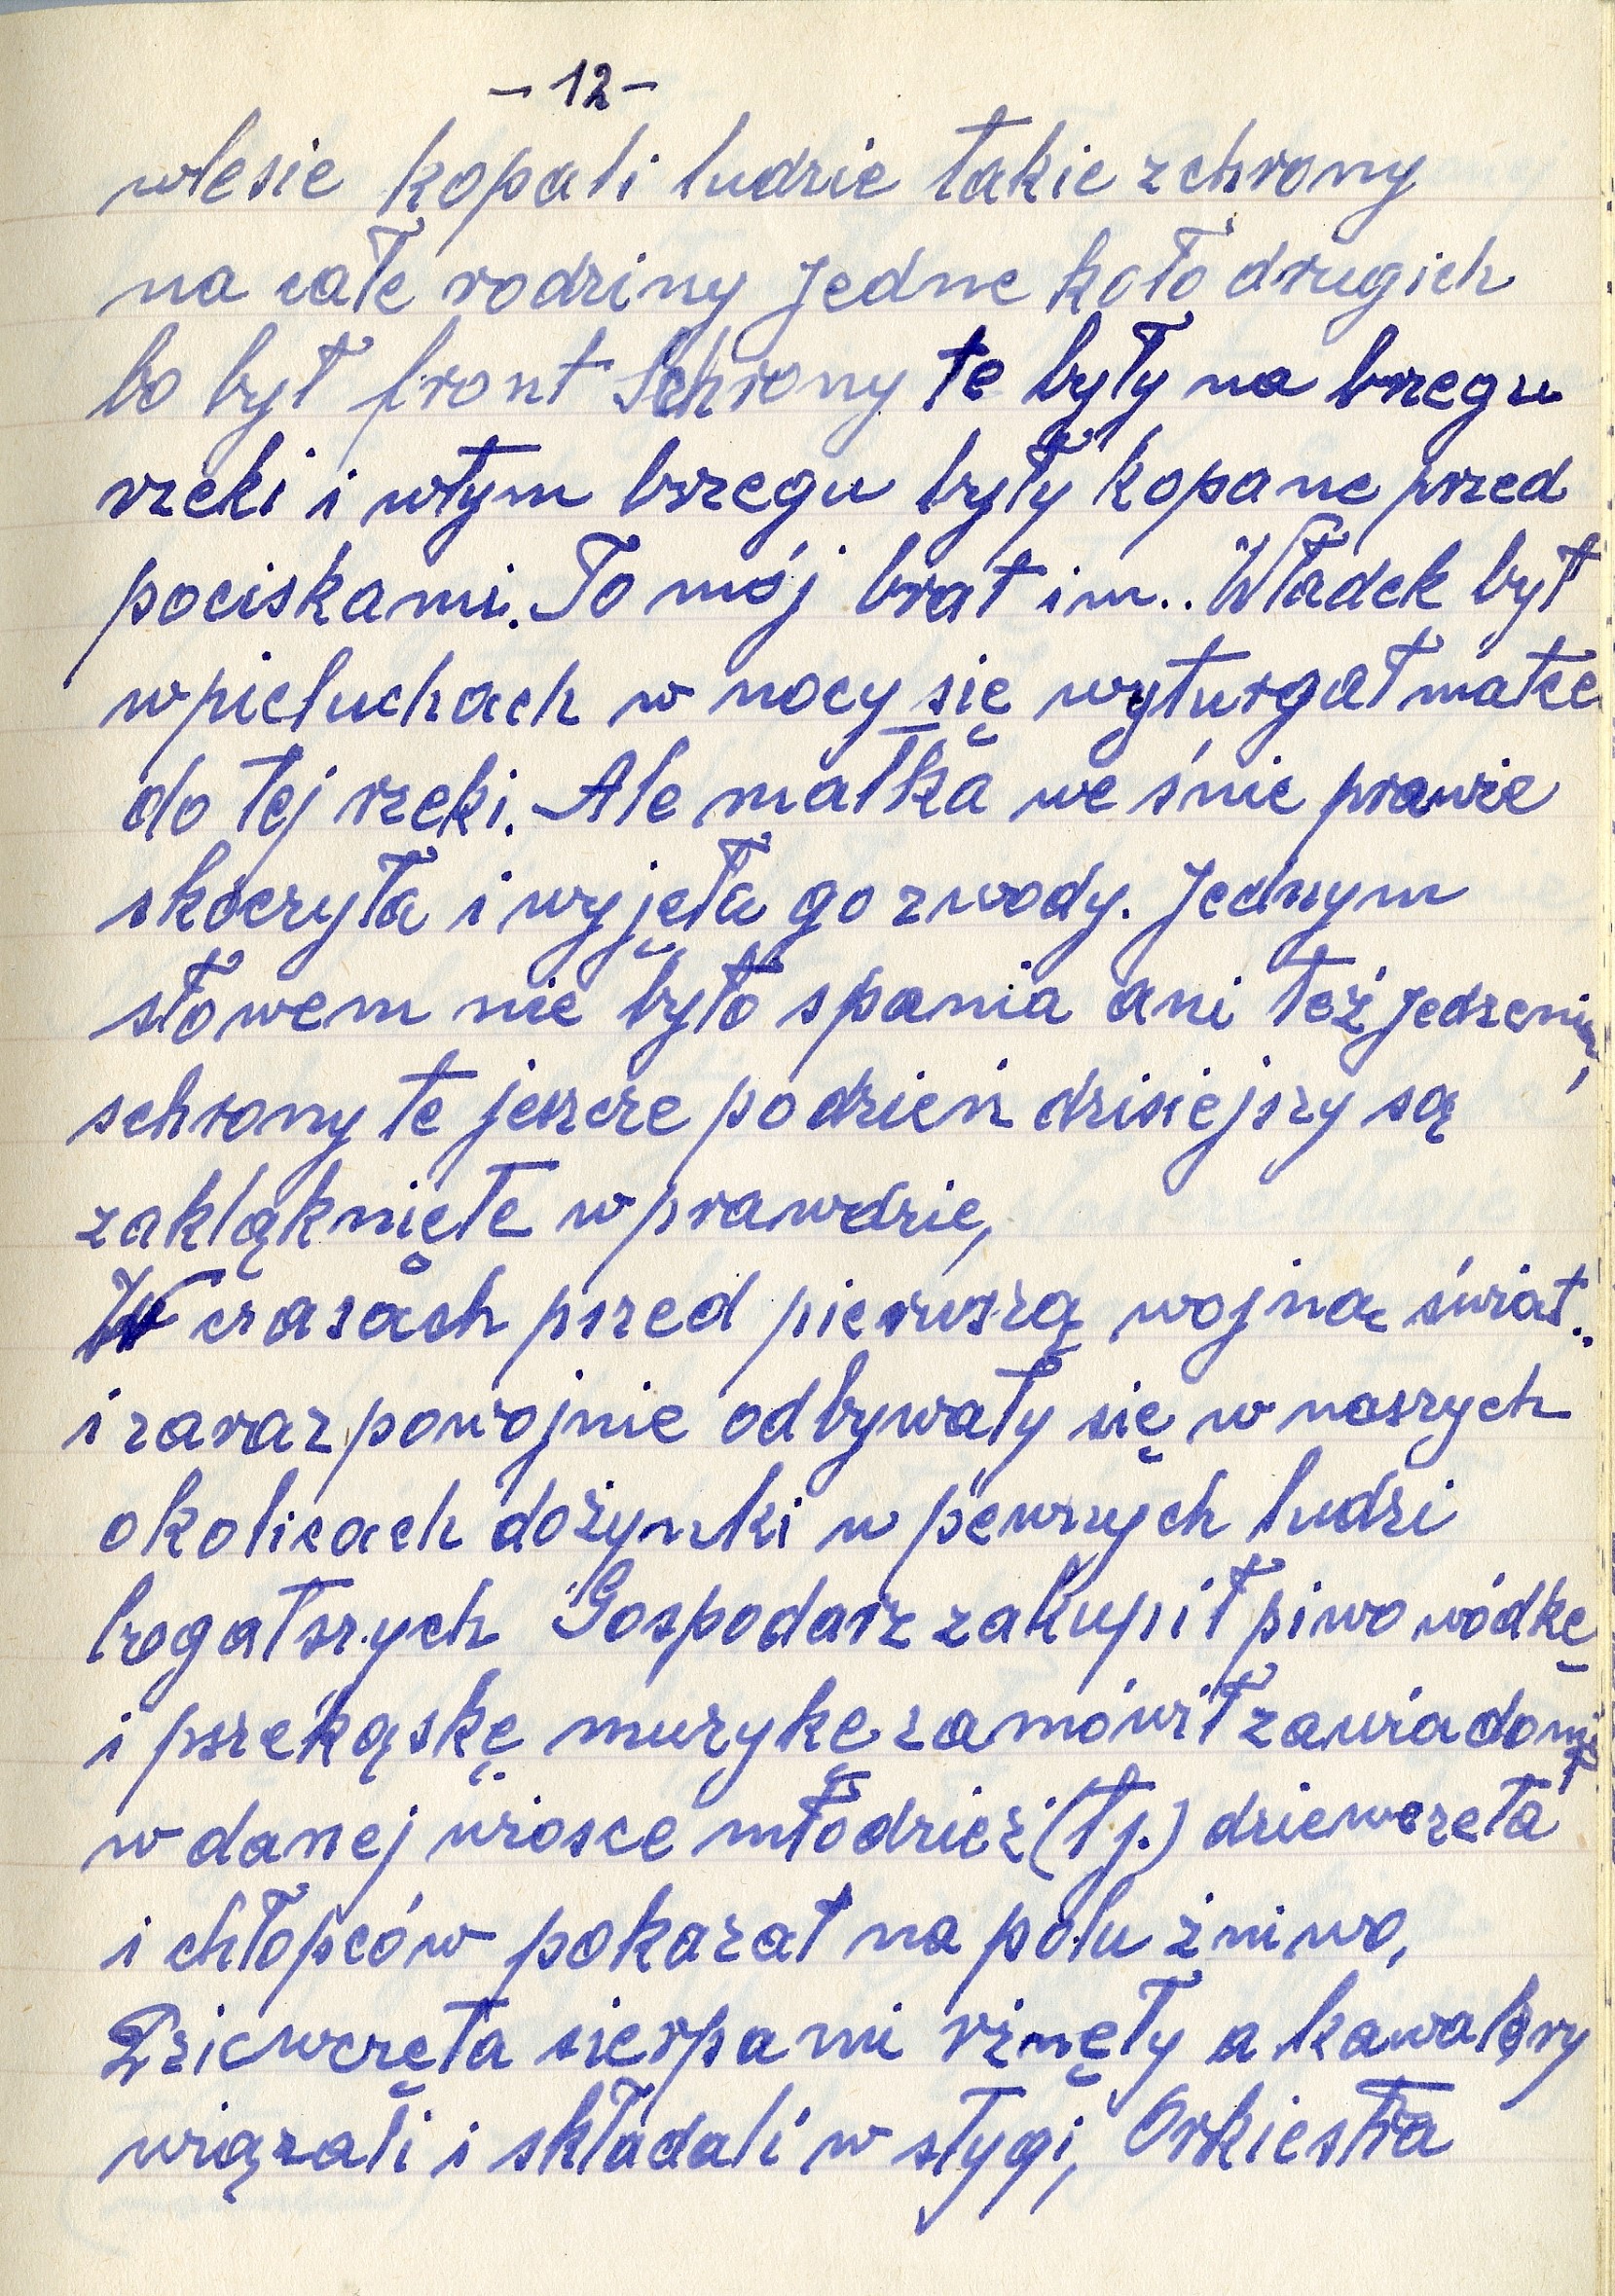 - 12 -
wlesie kopali ludzie takie zchrony
na całe rodziny jedne koło drugich
bo był front Schrony te były na brzegu
rzeki i wtym brzegu były kopane przed
pociskami. To mój brat im.. Władek był
w pieluchach w nocy się wyturgał matce
do tej rzeki. Ale matka we śnie prawie
skoczyła i wyjęła go z wody. Jednym
słowem nie było spania ani też jedzenia,
schrony te jeszcze podzień dzisiejszy są
zakląknięte wprawdzie,
W czasach przed pierwszą wojną świat..
i zaraz powojnie odbywały się w naszych
okolicach dożynki u pewnych ludzi
bogatszych Gospodarz zakupił piwo wódkę
i przekąskę muzykę zamówił zawiadomił
w danej wiosce młodzież (tj.) dziewczęta
i chłopców pokazał na polu żniwo,
Dziewczęta sierpami rżnęły a kawalery
wiązali i składali w stygi, Orkiestra